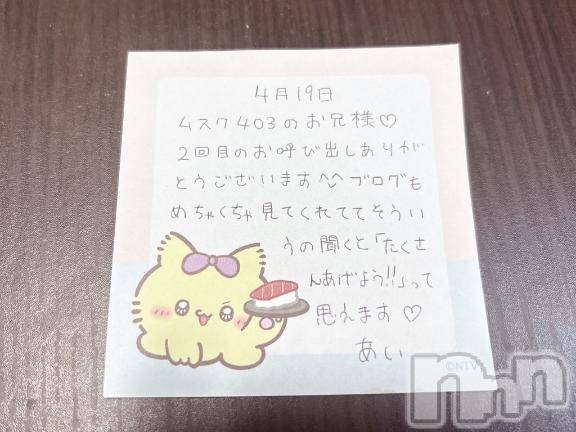 4月19日
ムスク403のお兄様♡
2回目のお呼び出しありが
とうございます^^ブログも
めちゃくちゃ見てくれててそうい
うの聞くと「たくさ
んあげよう!!」って
思えます♡
あい
©NTV
nnn